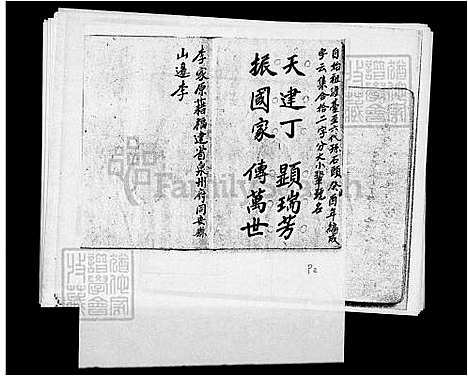 自始祖維臺至六代孫石頭癸酉年編成
字云集合拾二字分大小輩號名
天建丁 顯瑞芳
振國家 傳萬世
李家原藉福建省泉州府同安縣
山邊李
P2